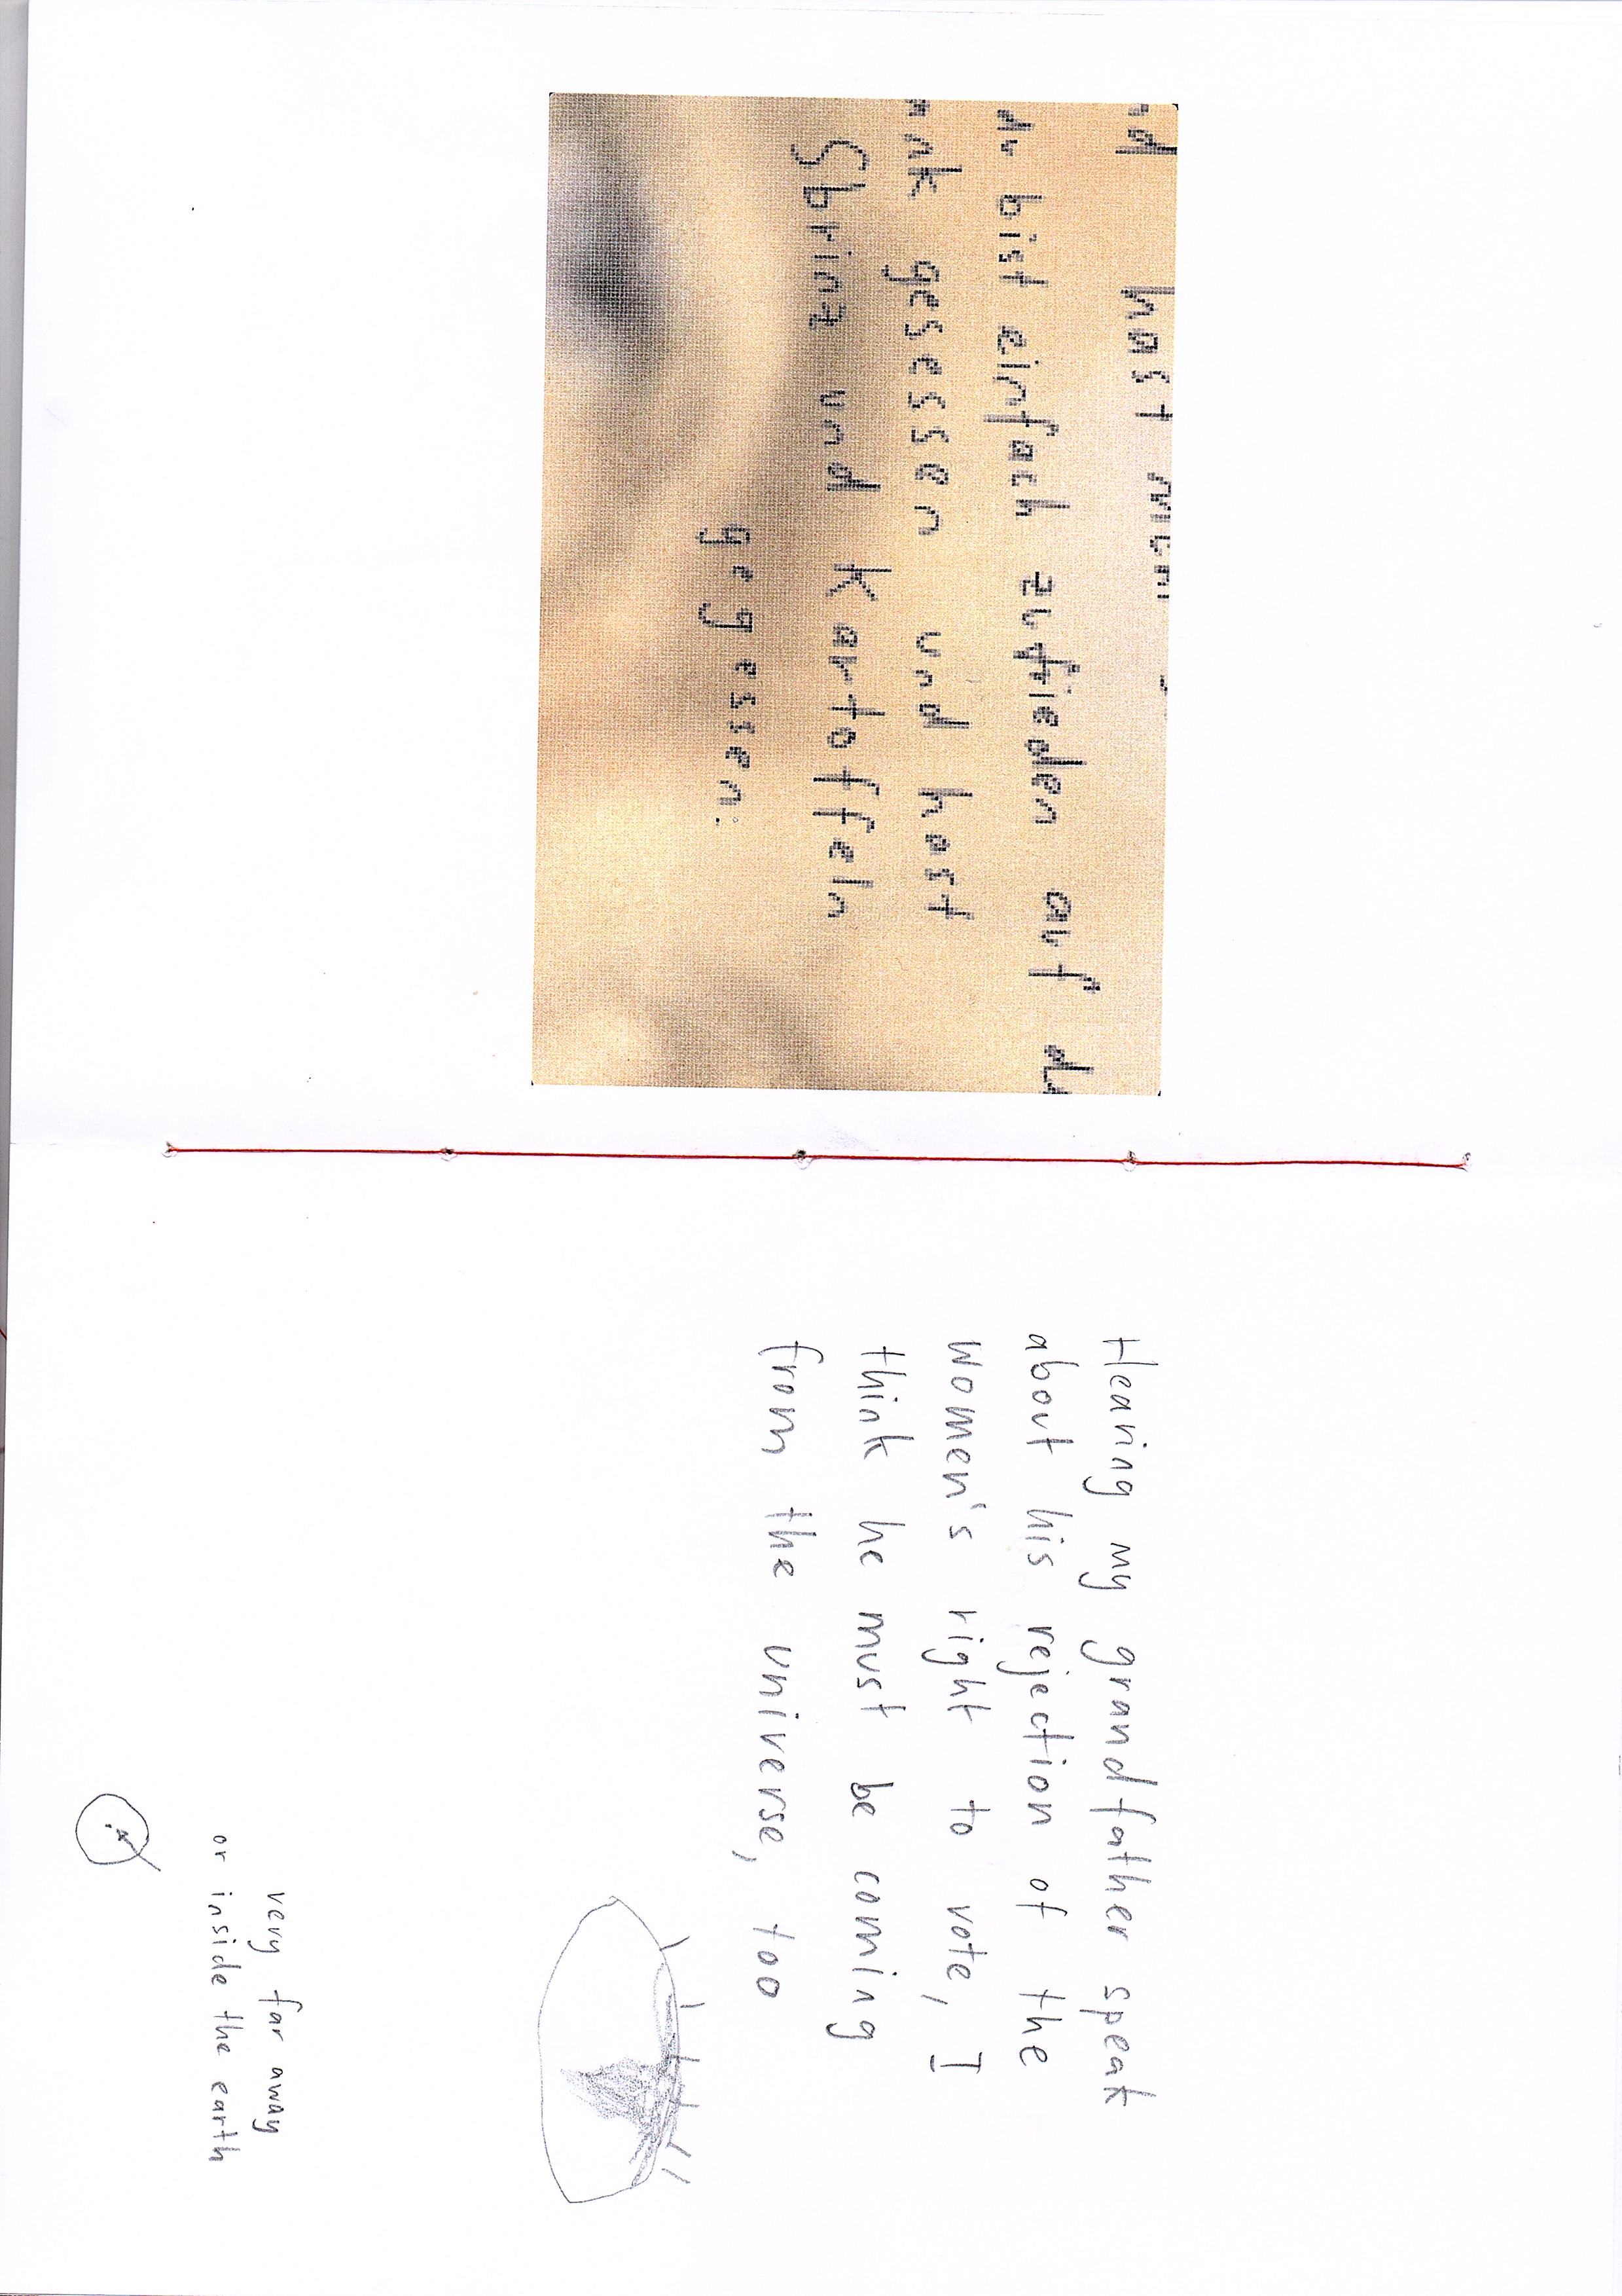 hast
du bist einfach zufrieden auf
gesessen und hast
Sbrinz und Kartoffeln
gegessen.
Hearing my grandfather speak
about his rejection of the
women's right to vote, I
think he must be coming
from the universe, too
very far away
or inside the earth